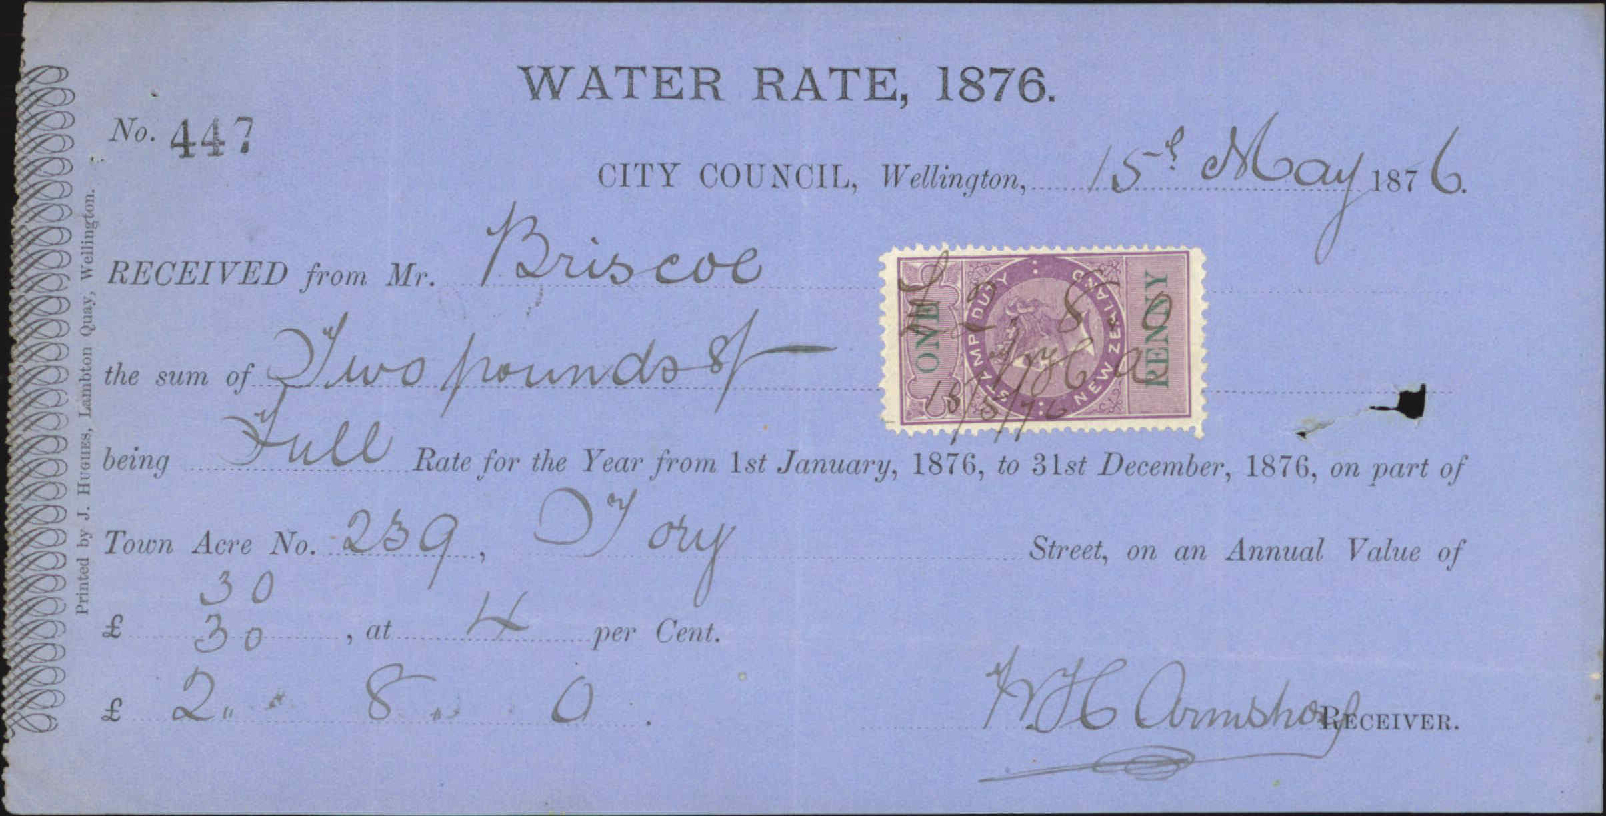 WATER RATE, 1876.
No. 447
CITY COUNCIL, Wellington, 15th May 1876.
RECEIVED from Mr. Briscoe
the sum of Two pounds 8/-
being Full Rate for the Year from 1st January, 1876, to 31st December, 1876, on part of
Town Acre No. 239, Tory Street, on an Annual Value of
30
£ 30, at 4 per Cent.
£ 2 „ 8 „ 0.
RECEIVER.
Printed by J. HUGHES, Lambton Quay, Wellington.
ONE PENNY
STAMP DUTY NEW ZEALAND
£2. 8. 0
15/5/76